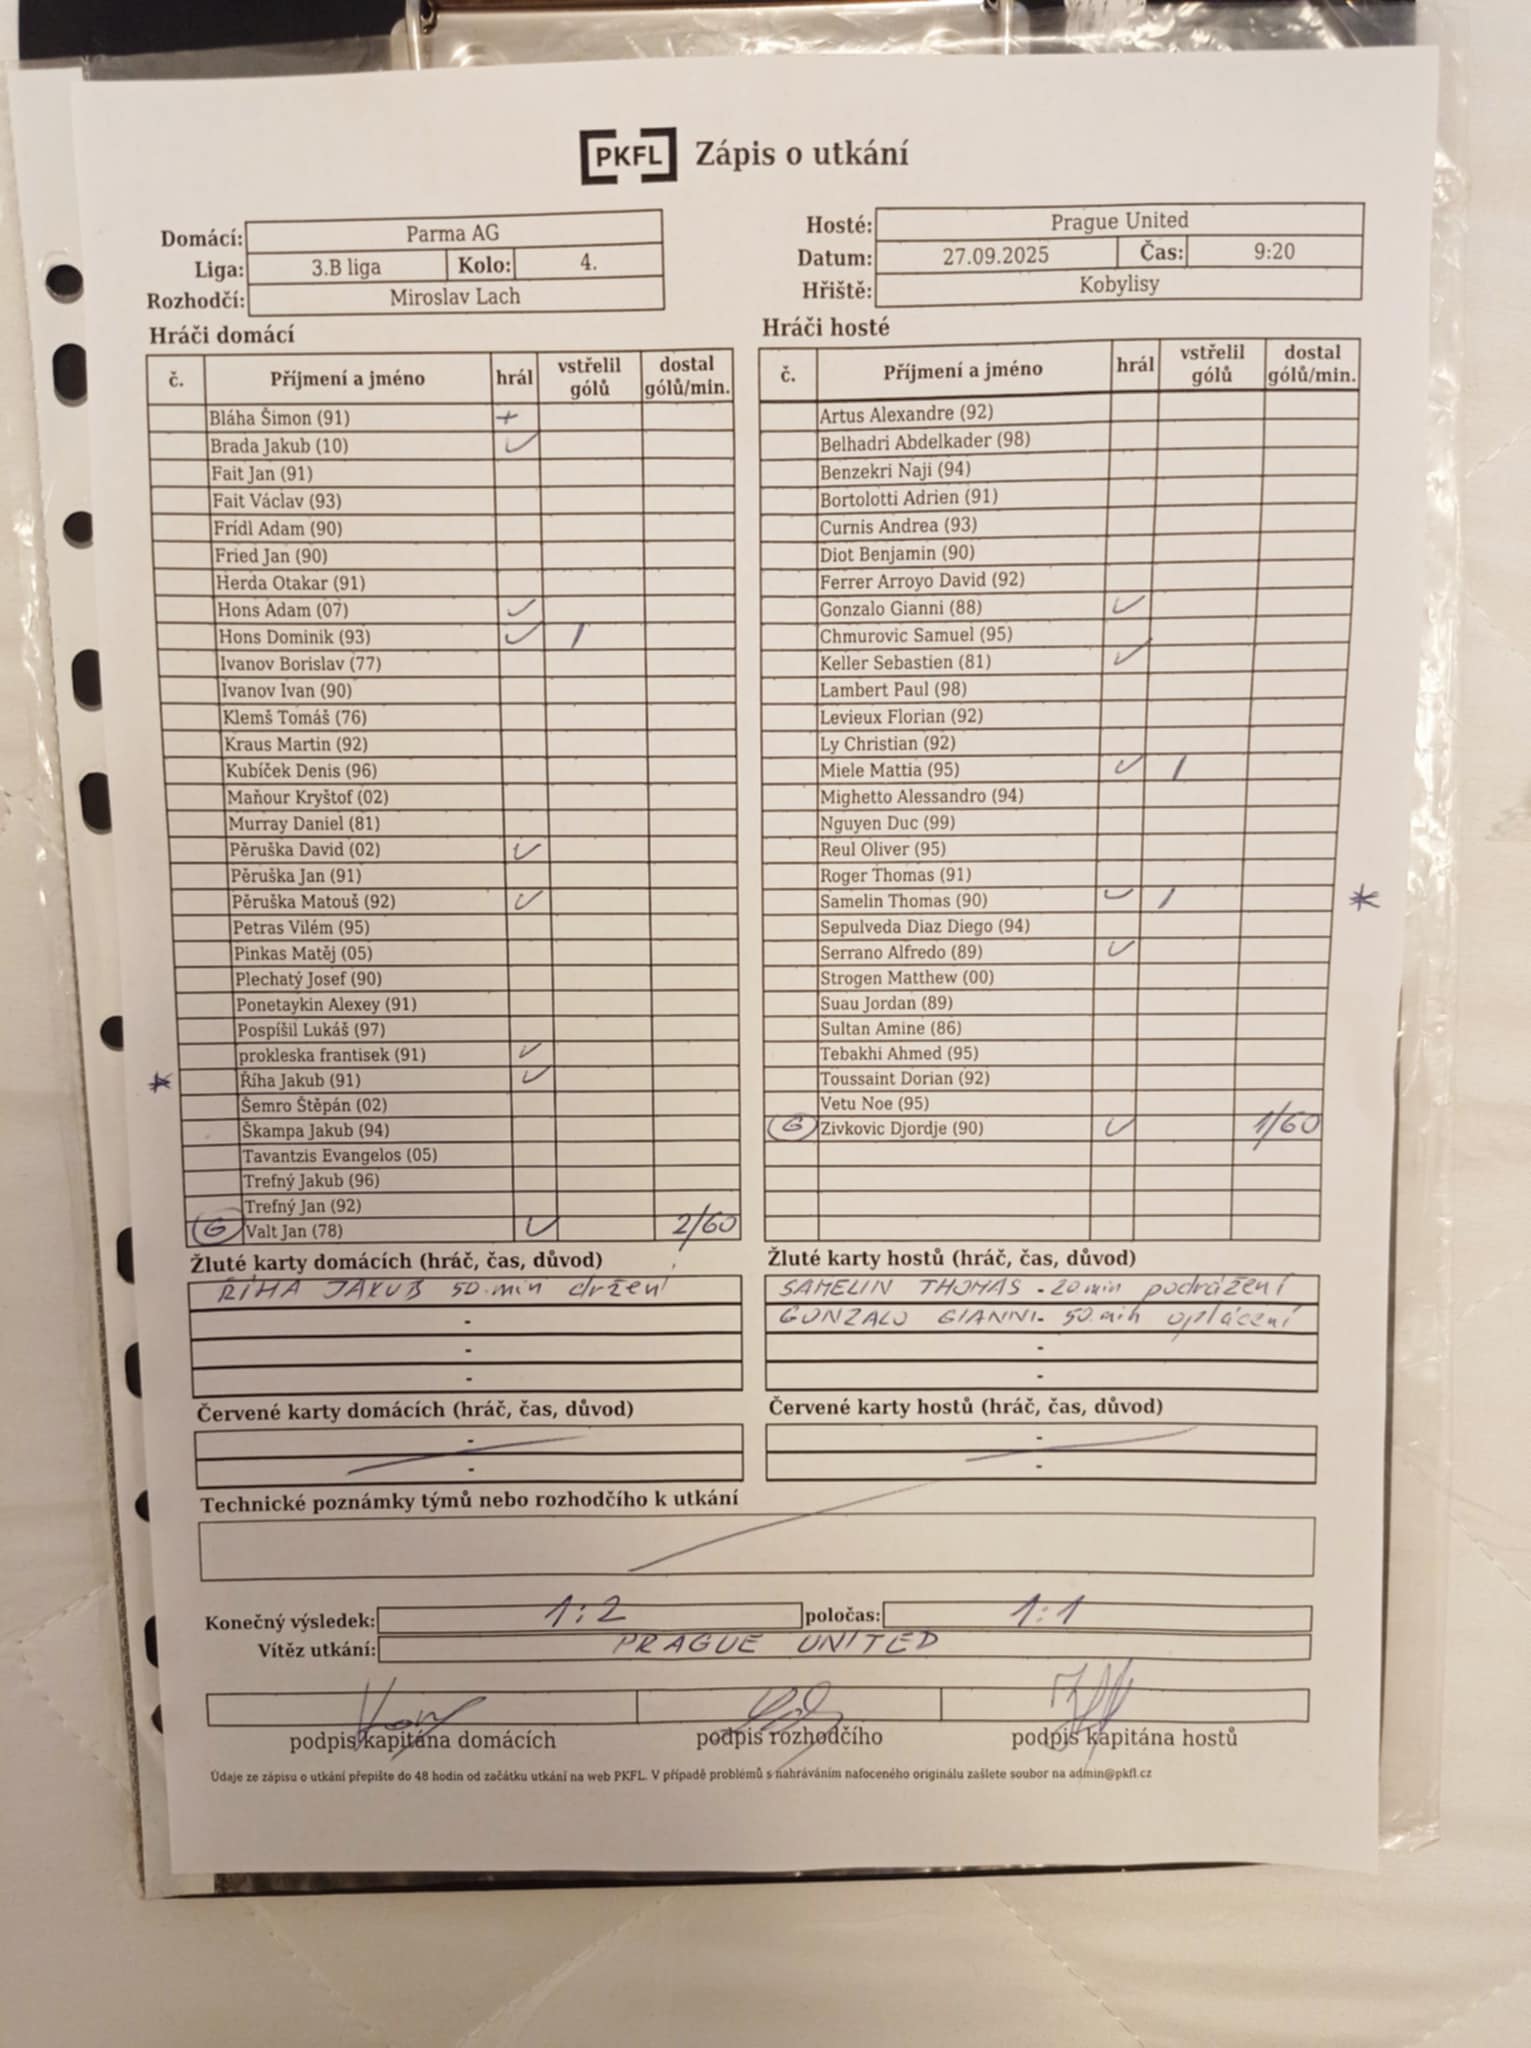 PKFL Zápis o utkání
Domácí: Parma AG
Liga: 3.B liga Kolo: 4.
Rozhodčí: Miroslav Lach
Hosté: Prague United
Datum: 27.09.2025 Čas: 9:20
Hřiště: Kobylisy
Hráči domácí
č. Příjmení a jméno hrál vstřelil gólů dostal gólů/min.
Bláha Šimon (91) +
Brada Jakub (10) ✓
Fait Jan (91)
Fait Václav (93)
Frídl Adam (90)
Fried Jan (90)
Herda Otakar (91)
Hons Adam (07) ✓
Hons Dominik (93) ✓ /
Ivanov Borislav (77)
Ivanov Ivan (90)
Klemš Tomáš (76)
Kraus Martin (92)
Kubíček Denis (96)
Maňour Kryštof (02)
Murray Daniel (81)
Pěruška David (02) ✓
Pěruška Jan (91)
Pěruška Matouš (92) ✓
Petras Vilém (95)
Pinkas Matěj (05)
Plechatý Josef (90)
Ponetaykin Alexey (91)
Pospíšil Lukáš (97)
prokleska frantisek (91) ✓
* Říha Jakub (91) ✓
Šemro Štěpán (02)
Škampa Jakub (94)
Tavantzis Evangelos (05)
Trefný Jakub (96)
Trefný Jan (92)
G Valt Jan (78) ✓ 2/60
Hráči hosté
č. Příjmení a jméno hrál vstřelil gólů dostal gólů/min.
Artus Alexandre (92)
Belhadri Abdelkader (98)
Benzekri Naji (94)
Bortolotti Adrien (91)
Curnis Andrea (93)
Diot Benjamin (90)
Ferrer Arroyo David (92)
Gonzalo Gianni (88) ✓
Chmurovic Samuel (95)
Keller Sebastien (81) ✓
Lambert Paul (98)
Levieux Florian (92)
Ly Christian (92)
Miele Mattia (95) ✓ /
Mighetto Alessandro (94)
Nguyen Duc (99)
Reul Oliver (95)
Roger Thomas (91)
Samelin Thomas (90) ✓ / *
Sepulveda Diaz Diego (94)
Serrano Alfredo (89) ✓
Strogen Matthew (00)
Suau Jordan (89)
Sultan Amine (86)
Tebakhi Ahmed (95)
Toussaint Dorian (92)
Vetu Noe (95)
G Zivkovic Djordje (90) ✓ 1/60
Žluté karty domácích (hráč, čas, důvod)
ŘÍHA JAKUB 50.min držení
-
-
-
Žluté karty hostů (hráč, čas, důvod)
SAMELIN THOMAS - 20min podrážení
GONZALO GIANNI - 50.min oplácení
-
-
Červené karty domácích (hráč, čas, důvod)
-
-
Červené karty hostů (hráč, čas, důvod)
-
-
Technické poznámky týmů nebo rozhodčího k utkání
Konečný výsledek: 1:2 poločas: 1:1
Vítěz utkání: PRAGUE UNITED
podpis kapitána domácích podpis rozhodčího podpis kapitána hostů
Údaje ze zápisu o utkání přepište do 48 hodin od začátku utkání na web PKFL. V případě problémů s nahráváním nafoceného originálu zašlete soubor na admin@pkfl.cz